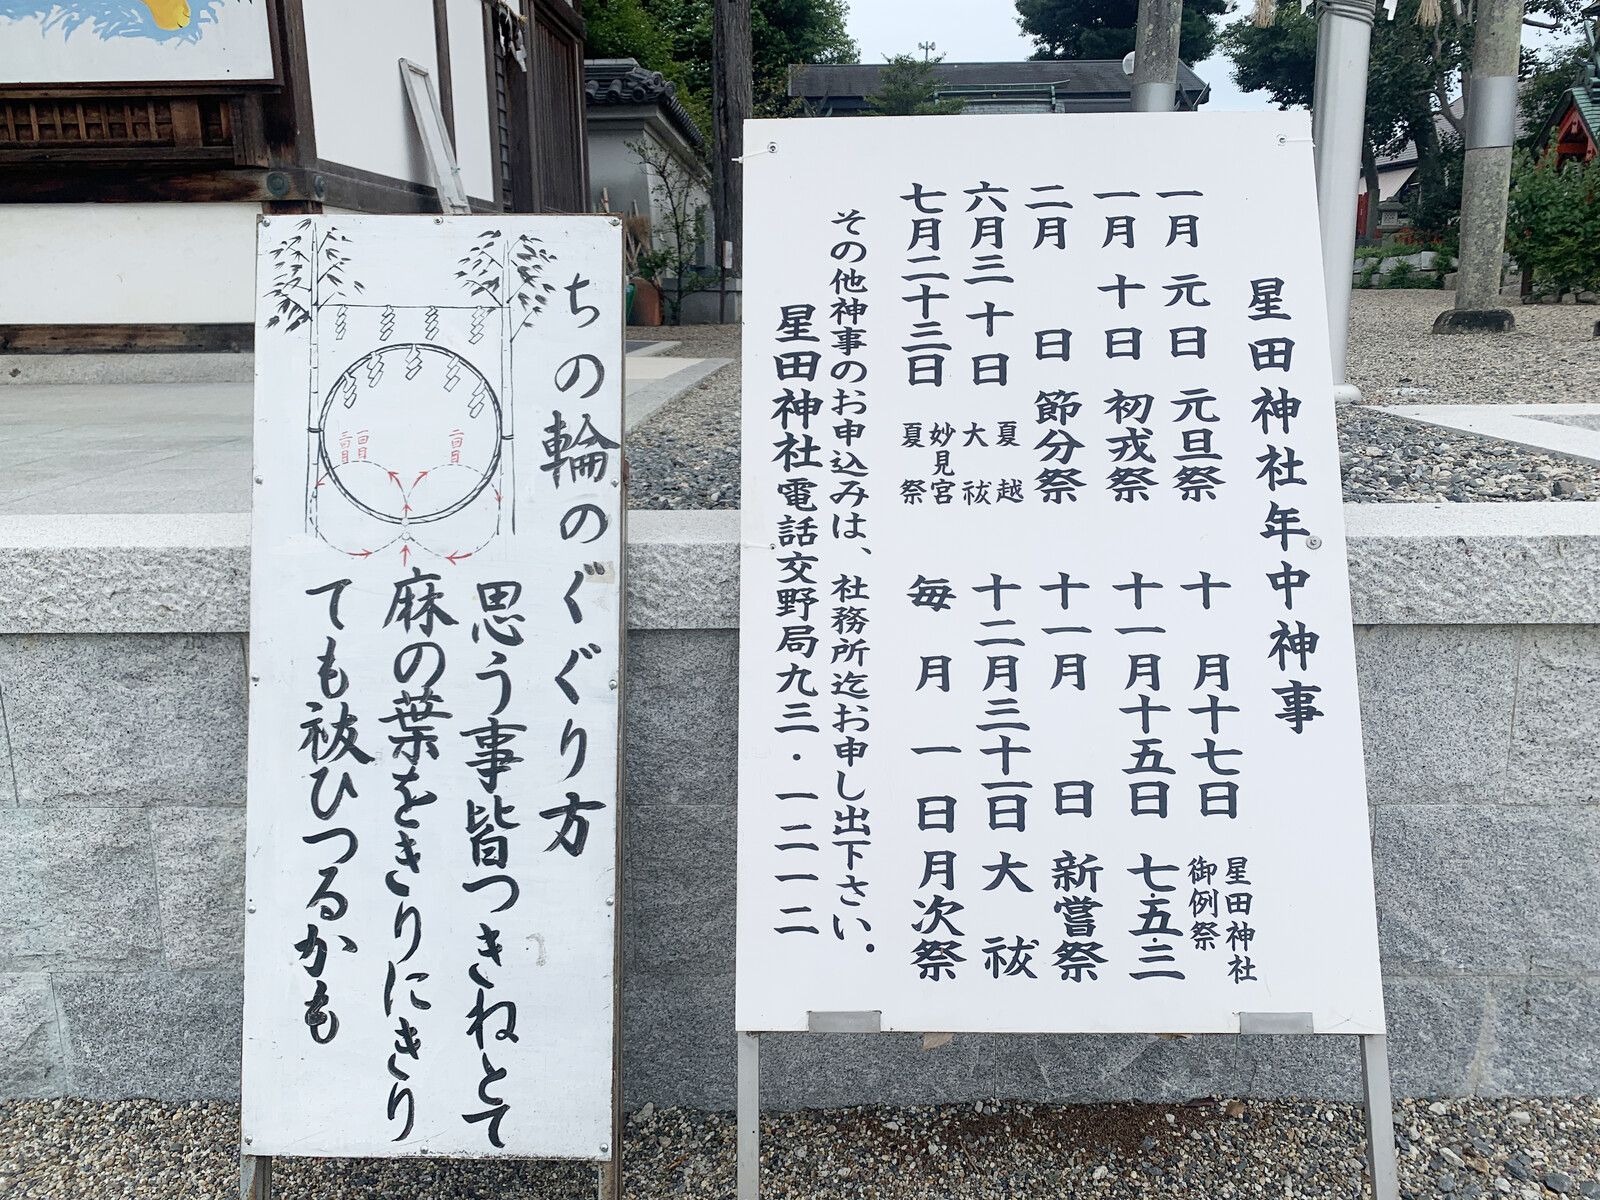 ちの輪のくぐり方
思う事皆つきねとて
麻の葉をきりにきり
ても祓ひつるかも
一回目
三回目
二回目
星田神社年中神事
一月元日 元旦祭
一月十日 初戎祭
二月 日 節分祭
六月三十日 夏越大祓
七月二十三日 妙見宮夏祭
十月十七日 星田神社御例祭
十一月十五日 七・五・三
十一月 日 新嘗祭
十二月三十一日 大祓
毎月一日 月次祭
その他神事のお申込みは、社務所迄お申し出下さい.
星田神社電話交野局九三・一二一二